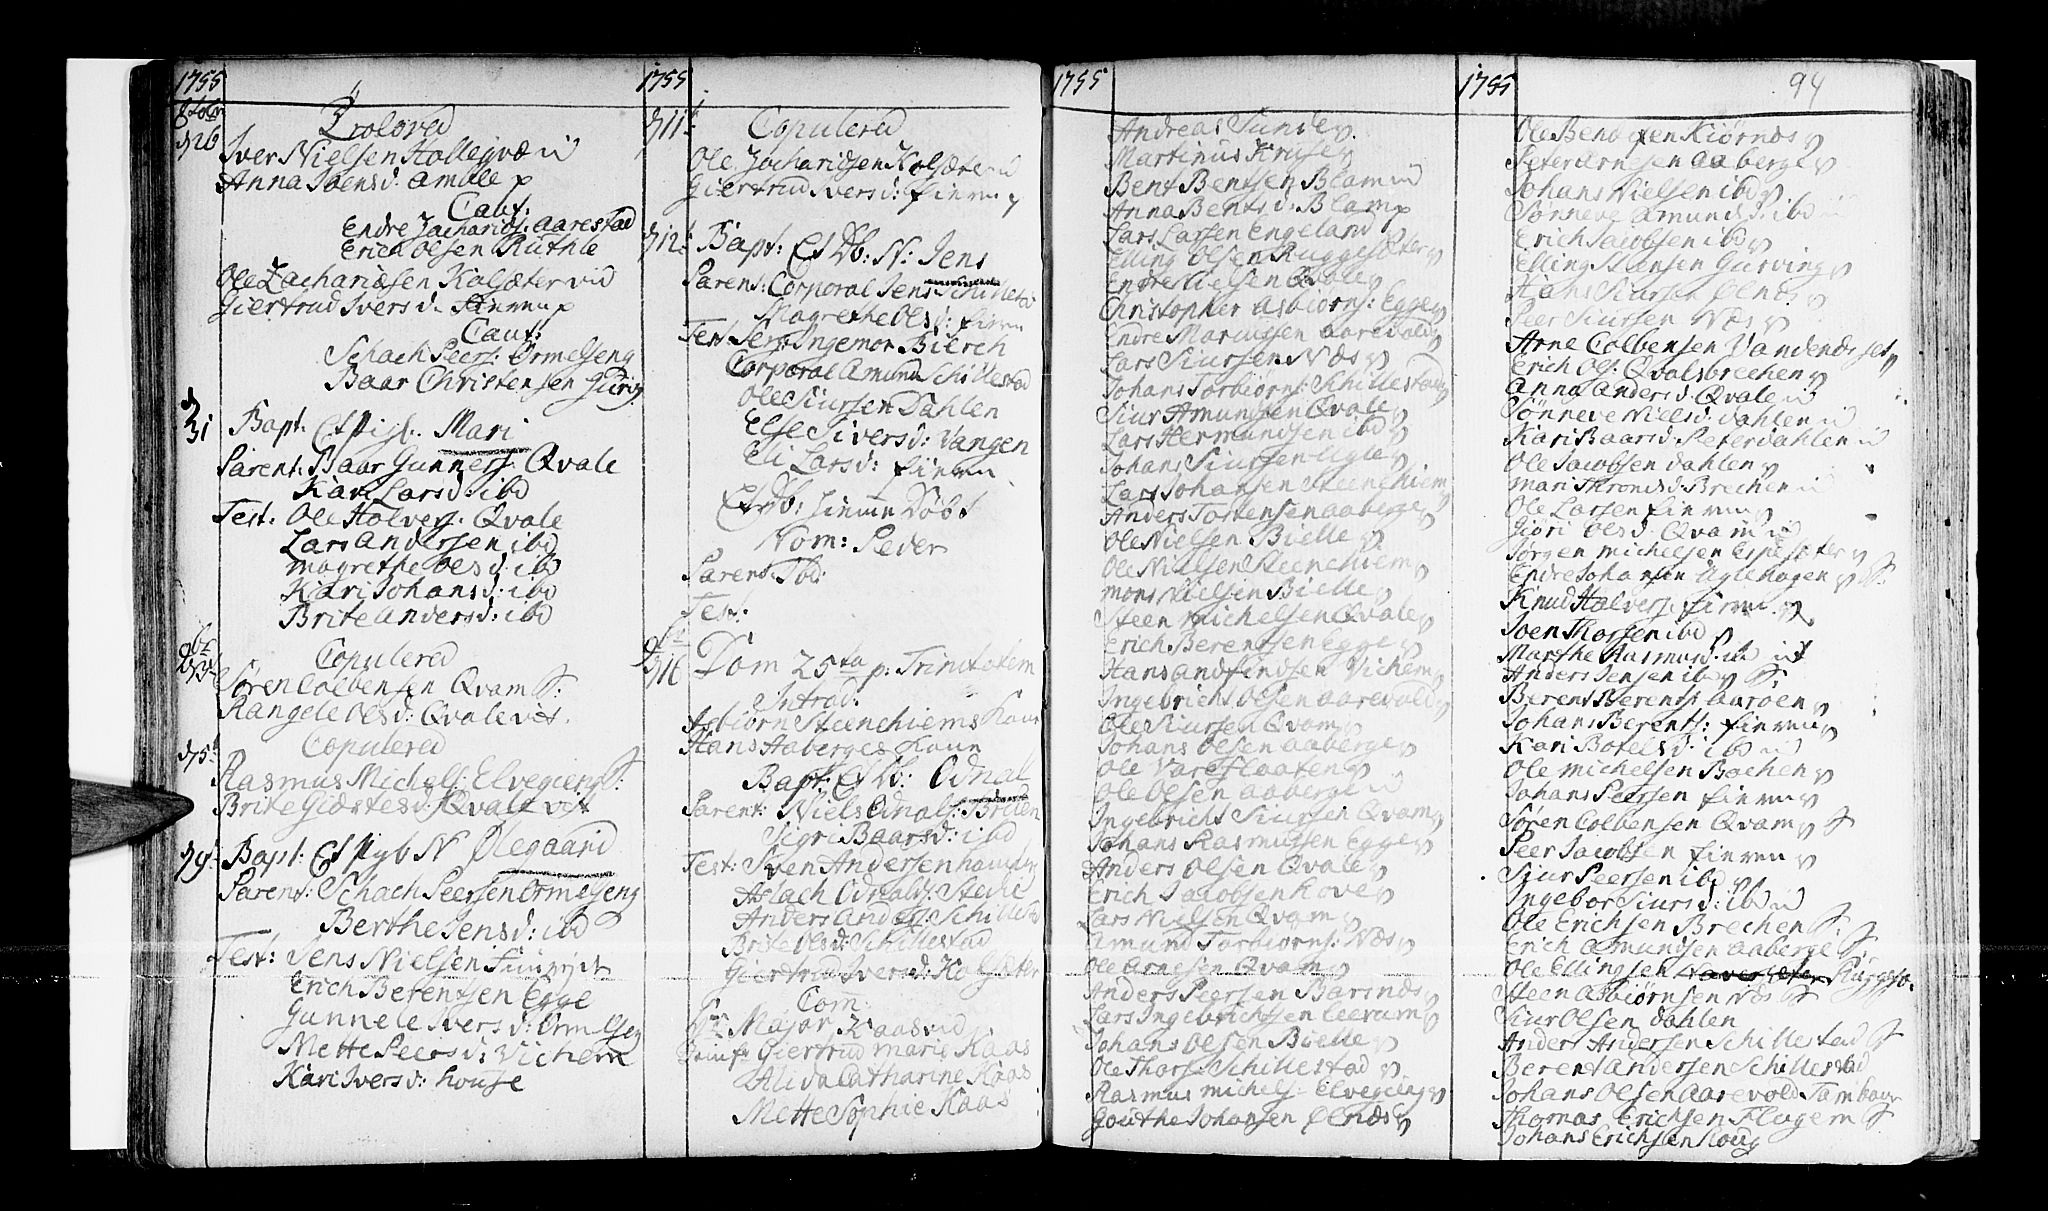 1755
8tobr
d 26
Troloved
Iver Nielsen Hollegvæ u
Anna Joensd: Amble p
Caut:
Endre Zacharids: Aarestad
Erich Olsen Ruthle
Ole Zachariesen Kalsæter vid
Giertrud Iversd: Finnen p
Caut:
Schach Peers: Ormelseng
Baar Christensen Guring
d 31
Bapt: Et Pigb. Mari
Parent: Baar Gunners: Qvale
Kari Larsd: ibd
Test: Ole Halvers: Qvale
Lars Andersen ibd
Magrethe Olsd: ibd
Kari Johansd: ibd
Brite Andersd: ibd
9br
Copulered
Søren Colbensen Qvam S:
Rangele Olsd: Qvale
d 5t
Copulered
Rasmus Michels: Elvegieng S:
Brite Giæstesd: Qvale
d 9t
Bapt: Et Pgb N Ølegaard
Parent: Schach Peersen Ormelseng
Berthe Jensd: ibd
Test: Jens Nielsen
Erich Berentsen Egge
Gunnele Iversd: Ormelseng
Mette Peersd: Vichem
Kari Iversd: house
1755
d 11t
Copulered
Ole Zacharidsen Kalsæter u
Giertrud Iversd: Finnen p
d 12t
Bapt: Et Db: N: Jens
Parent: Corporal Jens Schillestad
Magrethe Olsd: Finnen
Test: Serg: Ingemor Bierch
Corporal Amund Schillestad
Ole Siursen Dahlen
Else Siversd: Vangen
Eli Larsd: Finnen
Et Db: hiemme Døbt
Nom: Peder
Parent: Ibd:
Test:
d 16
Dom 25ta p: Trinitatem
Introd:
Asbiørn Steenchiems Kone
Hans Aaberges Kone
Bapt: Et Db: Odnal
Parent: Niels Odnals: Broen
Sigri Baarsd: ibd
Test: Sven Andersen
Aslach Odnals: Stedie
Anders Anders: Schillestad
Brite Olsd: Schillestad
Giertrud Iversd: Kalsæter
Com:
Major Kaas vid
Giertrud Marie Kaas
Alida Catharine Kaas
Mette Sophie Kaas
1755
Andreas Sunde
Martinus Kruse
Bent Bentsen Blam u
Anna Bentsd: Blam p
Lars Larsen Engeland
Elling Olsen Ruggesæter
Endre Nielsen Qvale
Christopher Asbiørns: Egge
Endre Marcussen Aarevold
Lars Siursen Næs
Johans Torbiørns: Schillestad
Siur Amunsen Qvale
Lars Hermundsen ibd
Johans Siursen Ugle
Lars Johansen Steenchiem
Anders Torstensen Aaberge
Ole Nielsen Bielle
Ole Nielsen Steenchiem
Mons Nielsen Bielle
Steen Michelsen Qvale
Erich Berentsen Egge
Hans Andfindsen Vichem
Ingebricht Olsen Aarevold
Ole Siursen Qvam
Johans Olsen Aaberge
Ole Vareflaaten
Ole Olsen Aaberge u
Ingebricht Siursen Qvam
Johans Rasmussen Egge
Anders Olsen Qvale
Erich Jacobsen Kove
Lars Nielsen Qvam
Amund Torbiørns: Næs
Ole Arnesen Qvam
Anders Peersen Barsnæs
Lars Ingebrichtsen Leerum
Johans Olsen Bielle
Ole Thors: Schillestad
Rasmus Michels: Elvegieng
Gouthe Johansen Ølnæs
1755
94
Ole Bendixen Kiørnæs
Peter Arnesen Aaberge
Johans Nielsen ibd
Sønneve Amundsd: ibd
Erich Jacobsen ibd
Elling Steensen Gurving
Hans Siursen Ølnæs
Peer Siursen Næs
Arne Colbensen Vandenæsset
Erich Ols: Qvalsbrechen
Anna Andersd: Qvale u
Sønneve Nielsd: Dahlen u
Kari Baarsd: Peterdahlen u
Ole Jacobsen Dahlen
Mari Thronsd: Brechen u
Ole Larsen Finnen
Giøri Olsd: Qvam u
Jørgen Michelsen Espesæter
Endre Johansen Uglehagen S:
Knud Halvers: Finnen
Joen Thorsen ibd
Marthe Rasmusd: ibd
Anders Jensen ibd S:
Berent Berents: Aarøen
Johans Berents: Finnen
Kari Botelsd: ibd u
Ole Michelsen Bachen
Johans Peersen Finnen
Søren Colbensen Qvam S
Peer Jacobsen Finnen
Siur Peersen ibd
Ingebor Siursd: ibd u
Ole Erichsen Brechen S
Erich Amundsen Aaberge S
Ole Ellingsen Ruggesæ:
Steen Asbiørnsen Næs S
Siur Olsen Dahlen
Anders Andersen Schillestad S
Berent Andersen Schillestad
Johans Olsen Aarevold Tambour
Thomas Erichsen Flugem S
Johans Erichsen Koug